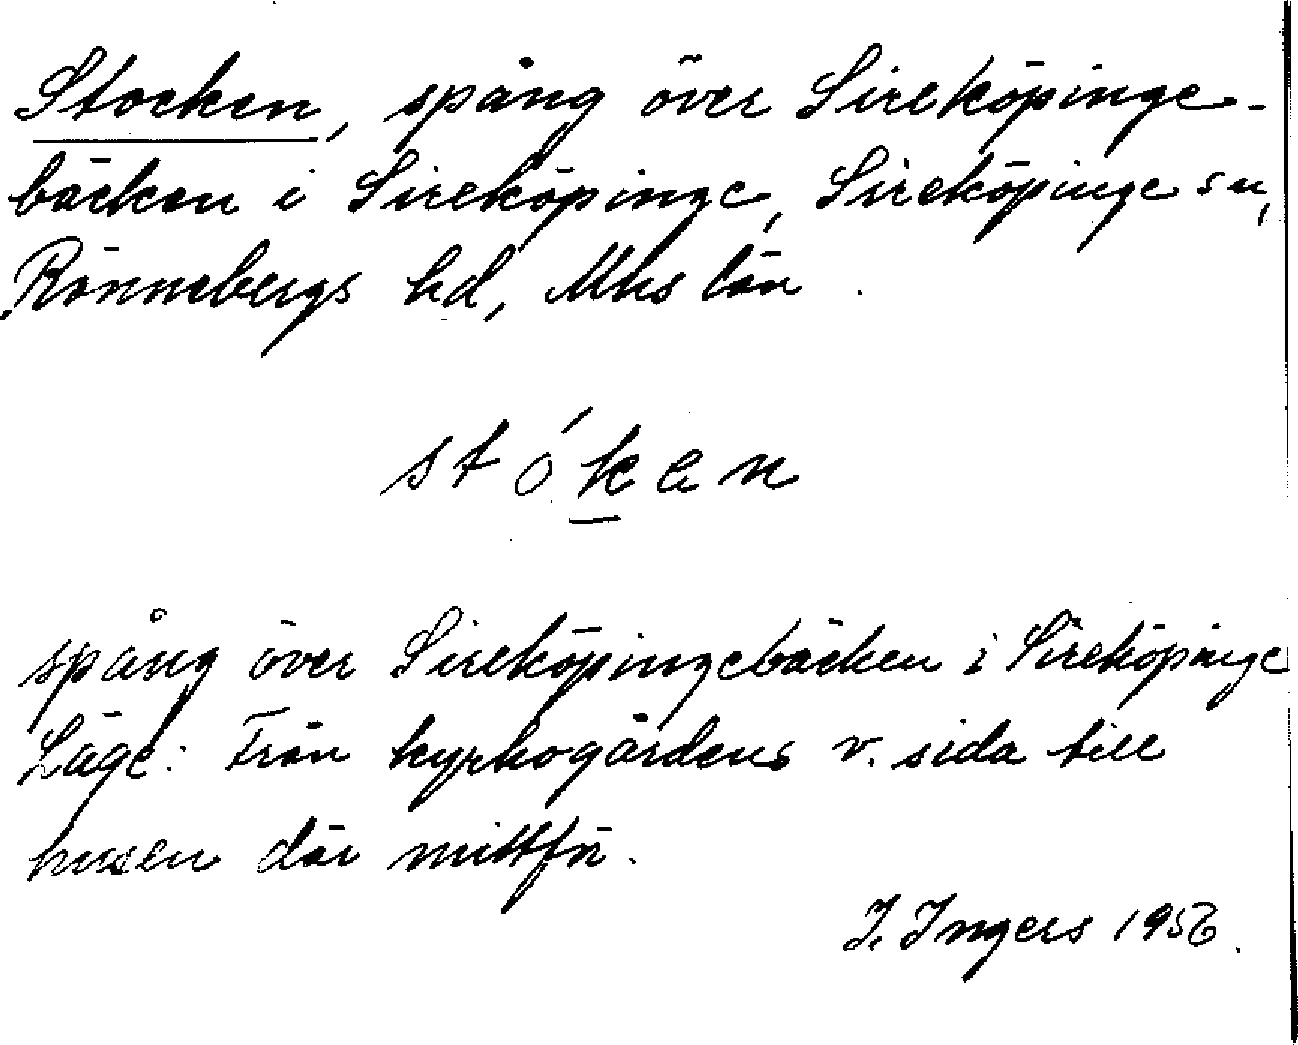 Stocken, spång över Sireköpinge-
bäcken i Sireköpinge, Sireköpinge sn,
Rönnebergs hd, Mhs län.
stóken
spång över Sireköpingebäcken i Sireköpinge
Läge: Från kyrkogårdens v. sida till
husen där mittför.
I. Ingers 1956.